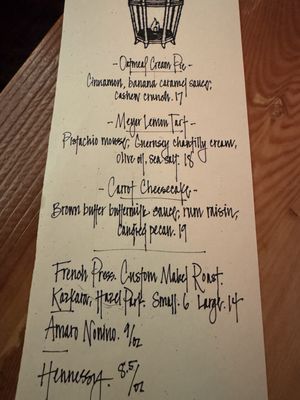 - Oatmeal Cream Pie -
Cinnamon, banana caramel sauce,
cashew crunch. 17
- Meyer Lemon Tart -
Pistachio mousse, Guernsey chantilly cream,
olive oil, sea salt. 18
- Carrot Cheesecake -
Brown butter buttermilk sauce, rum raisin,
candied pecan. 19
French Press. Custom Makel Roast.
Small. 6 Large. 14
Amaro Nonino. 9/oz
Hennessy. 8.5/oz